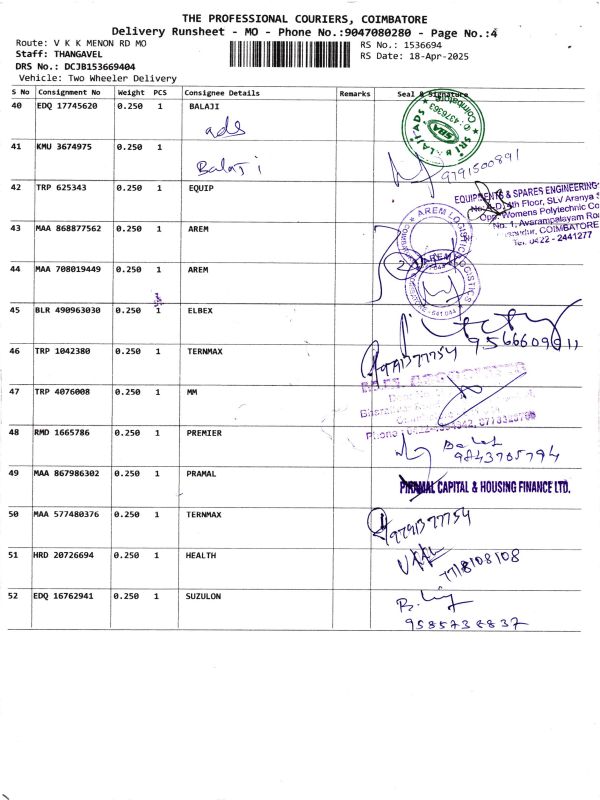 THE PROFESSIONAL COURIERS, COIMBATORE
Delivery Runsheet - MO - Phone No.:9047080280 - Page No.:4
Route: V K K MENON RD MO
Staff: THANGAVEL
DRS No.: DCJB153669404
Vehicle: Two Wheeler Delivery
RS No.: 1536694
RS Date: 18-Apr-2025
S No Consignment No Weight PCS Consignee Details Remarks Seal & Signature
40 EDQ 17745620 0.250 1 BALAJI
ads
SRI BALAJI ADS
Coimbatore
SBA
41 KMU 3674975 0.250 1
Balaji
9791500891
42 TRP 625343 0.250 1 EQUIP
EQUIPMENTS & SPARES ENGINEERING
4th Floor, SLV Aranya
Opp. Womens Polytechnic Co
No: 1, Avarampalayam Roa
COIMBATORE
Tel: 0422 - 2441277
43 MAA 868877562 0.250 1 AREM
AREM LOGISTICS
44 MAA 708019449 0.250 1 AREM
AREM
45 BLR 490963030 0.250 1 ELBEX
46 TRP 1042380 0.250 1 TERNMAX
9791377754
47 TRP 4076008 0.250 1 MM
48 RMD 1665786 0.250 1 PREMIER
9843705794
49 MAA 867986302 0.250 1 PRAMAL
PIRAMAL CAPITAL & HOUSING FINANCE LTD.
50 MAA 577480376 0.250 1 TERNMAX
9791377754
51 HRD 20726694 0.250 1 HEALTH
7718108108
52 EDQ 16762941 0.250 1 SUZULON
9585738837